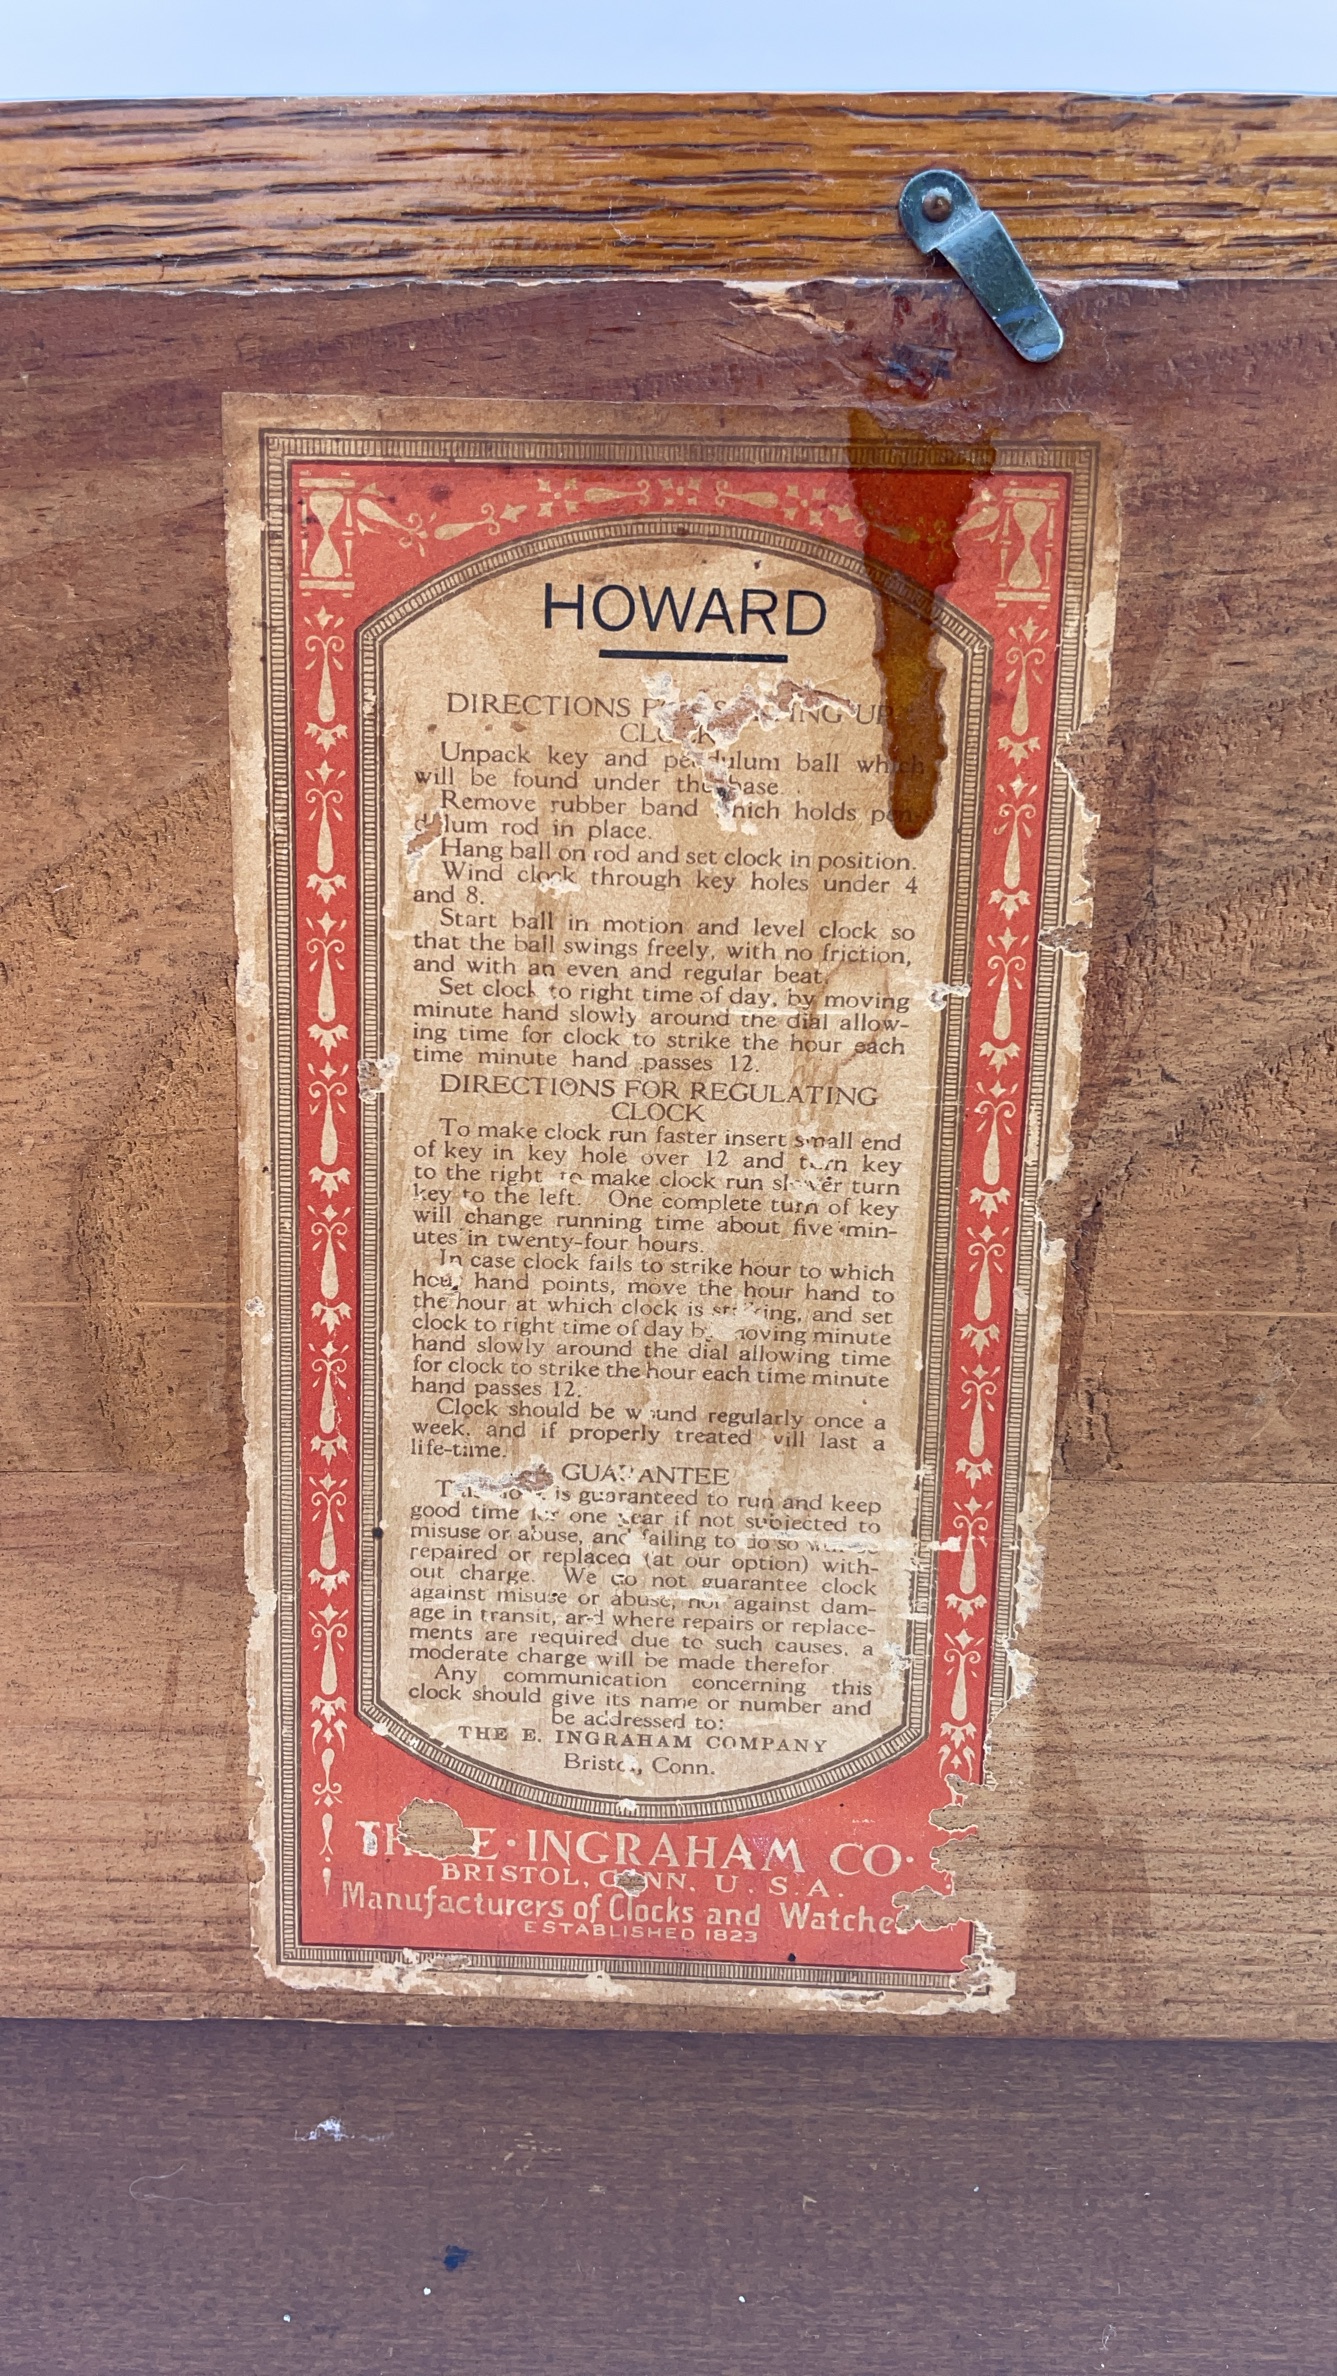 HOWARD
DIRECTIONS UP
CLOCK
Unpack key and pendulum ball which
will be found under the base.
Remove rubber band which holds pen-
dulum rod in place.
Hang ball on rod and set clock in position.
Wind clock through key holes under 4
and 8.
Start ball in motion and level clock so
that the ball swings freely, with no friction,
and with an even and regular beat.
Set clock to right time of day, by moving
minute hand slowly around the dial allow-
ing time for clock to strike the hour each
time minute hand passes 12.
DIRECTIONS FOR REGULATING
CLOCK
To make clock run faster insert small end
of key in key hole over 12 and turn key
to the right to make clock run slower turn
key to the left. One complete turn of key
will change running time about five min-
utes in twenty-four hours.
In case clock fails to strike hour to which
hour hand points, move the hour hand to
the hour at which clock is striking, and set
clock to right time of day by moving minute
hand slowly around the dial allowing time
for clock to strike the hour each time minute
hand passes 12.
Clock should be wound regularly once a
week, and if properly treated will last a
life-time.
GUARANTEE
is guaranteed to run and keep
good time for one year if not subjected to
misuse or abuse, and failing to do so
repaired or replaced (at our option) with-
out charge. We do not guarantee clock
against misuse or abuse, nor against dam-
age in transit, and where repairs or replace-
ments are required due to such causes, a
moderate charge will be made therefor.
Any communication concerning this
clock should give its name or number and
be addressed to:
THE E. INGRAHAM COMPANY
Bristol, Conn.
THE E. INGRAHAM CO.
BRISTOL, CONN. U. S. A.
Manufacturers of Clocks and Watches
ESTABLISHED 1823